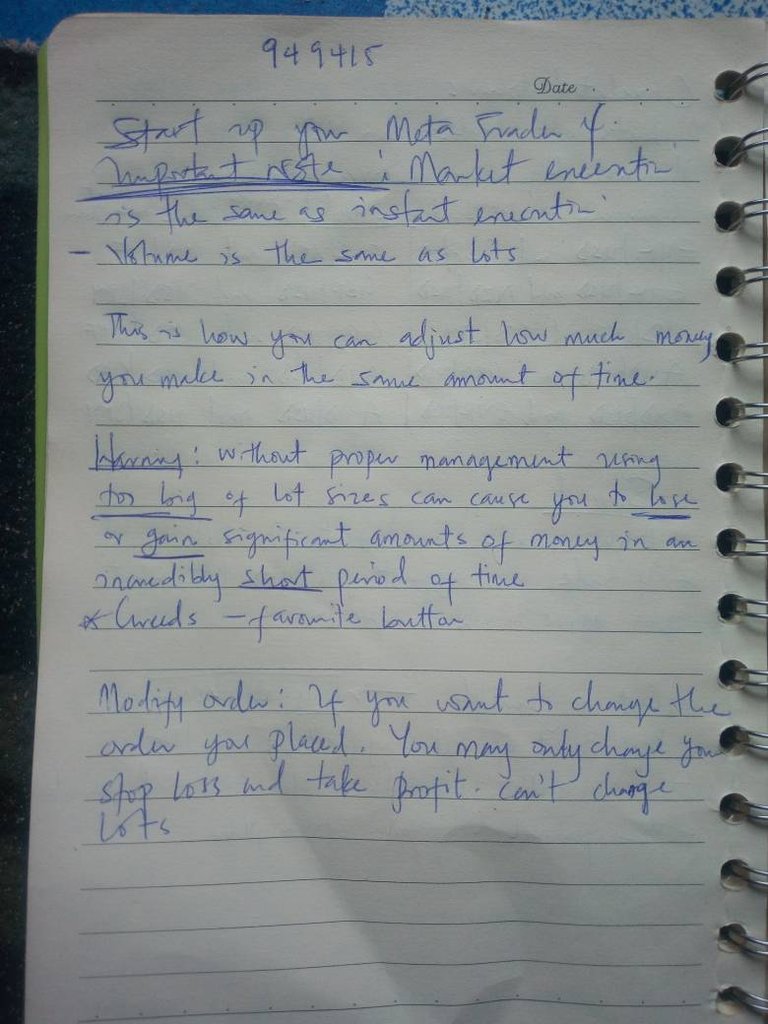 949415
Date
Start up your Meta Trader 4.
Important note : Market execution
is the same as instant execution
- Volume is the same as lots
This is how you can adjust how much money
you make in the same amount of time.
Warning: without proper management using
too big of lot sizes can cause you to lose
or gain significant amounts of money in an
incredibly short period of time
* - favourite button
Modify order: If you want to change the
order you placed. You may only change your
stop loss and take profit. Can't change
Lots